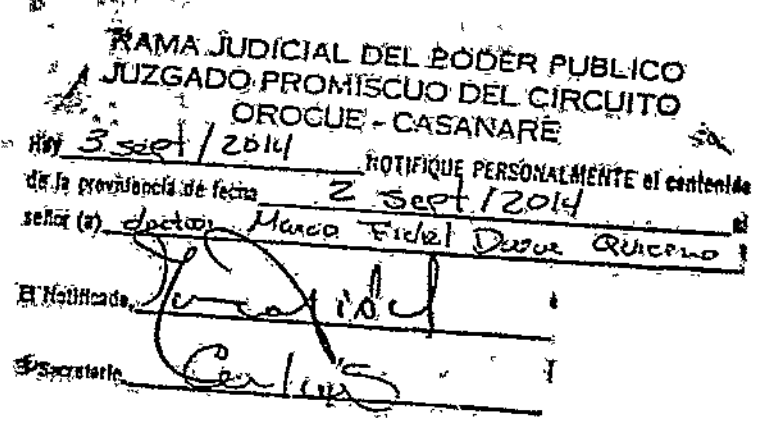 RAMA JUDICIAL DEL PODER PUBLICO
JUZGADO PROMISCUO DEL CIRCUITO
OROCUE - CASANARE
Hoy 3 sept / 2014 NOTIFIQUE PERSONALMENTE el contenido
de la providencia de fecha 2 Sept / 2014 al
señor (a) doctor Marco Fidel Duque Quiceno
El Notificado,
El Secretario, Carlos